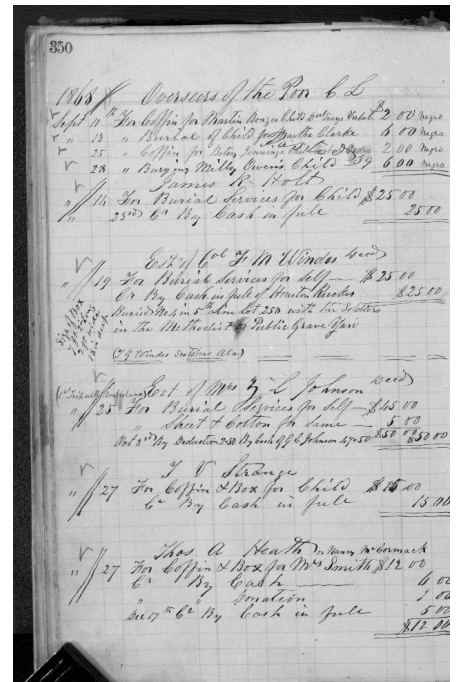 350
1868 Overseers of the Poor C L
Sept 11th For Coffin for Martin Child $2 00 Negro
" 13 " Burial of Child for Martha Clarke 6 00 Negro
" 25 " Coffin for Peter Jennings Child 2 00 Negro
" 28 " Burying Milly Owens Child 6 00 Negro
James R Holt
" 14 For Burial Services for Child $25 00
" 23rd Cr By Cash in full 25 00
Est of Col F M Windes Decd
" 19 For Burial Services for self $25 00
Cr By Cash in full of Rucker $25 00
Buried No 4 in 5 Line Lot 250 with the Soldiers
in the Methodist or Public Grave Yard
Size of Box
(T G Windes Ala)
Est of Mrs L Johnson Decd
" 25 For Burial Services for self $45 00
" Sheet & Cotton for same 5 00
Oct 3rd By Deduction 2.50 By Cash of G C Johnson 47.50 $50 00 $50 00
T V Strange
" 27 For Coffin & Box for Child $15 00
Cr By Cash in full 15 00
Thos A Heath or Nancy McCormack
" 27 For Coffin & Box for Mrs Smith $12 00
Cr By Cash
" " Donation
Dec 17th Cr By Cash in full 5 00
$12 00